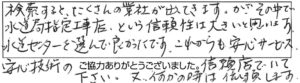 検索すると、たくさんの業社が出てきます。が、その中で
水道局指定工事店、という信頼性は大きいと思います。
水道センターを選んで良かったです。これからも安心サービス、
安心技術の ご協力ありがとうございました。信頼店でいて
下さい。又、何かの時は依頼します